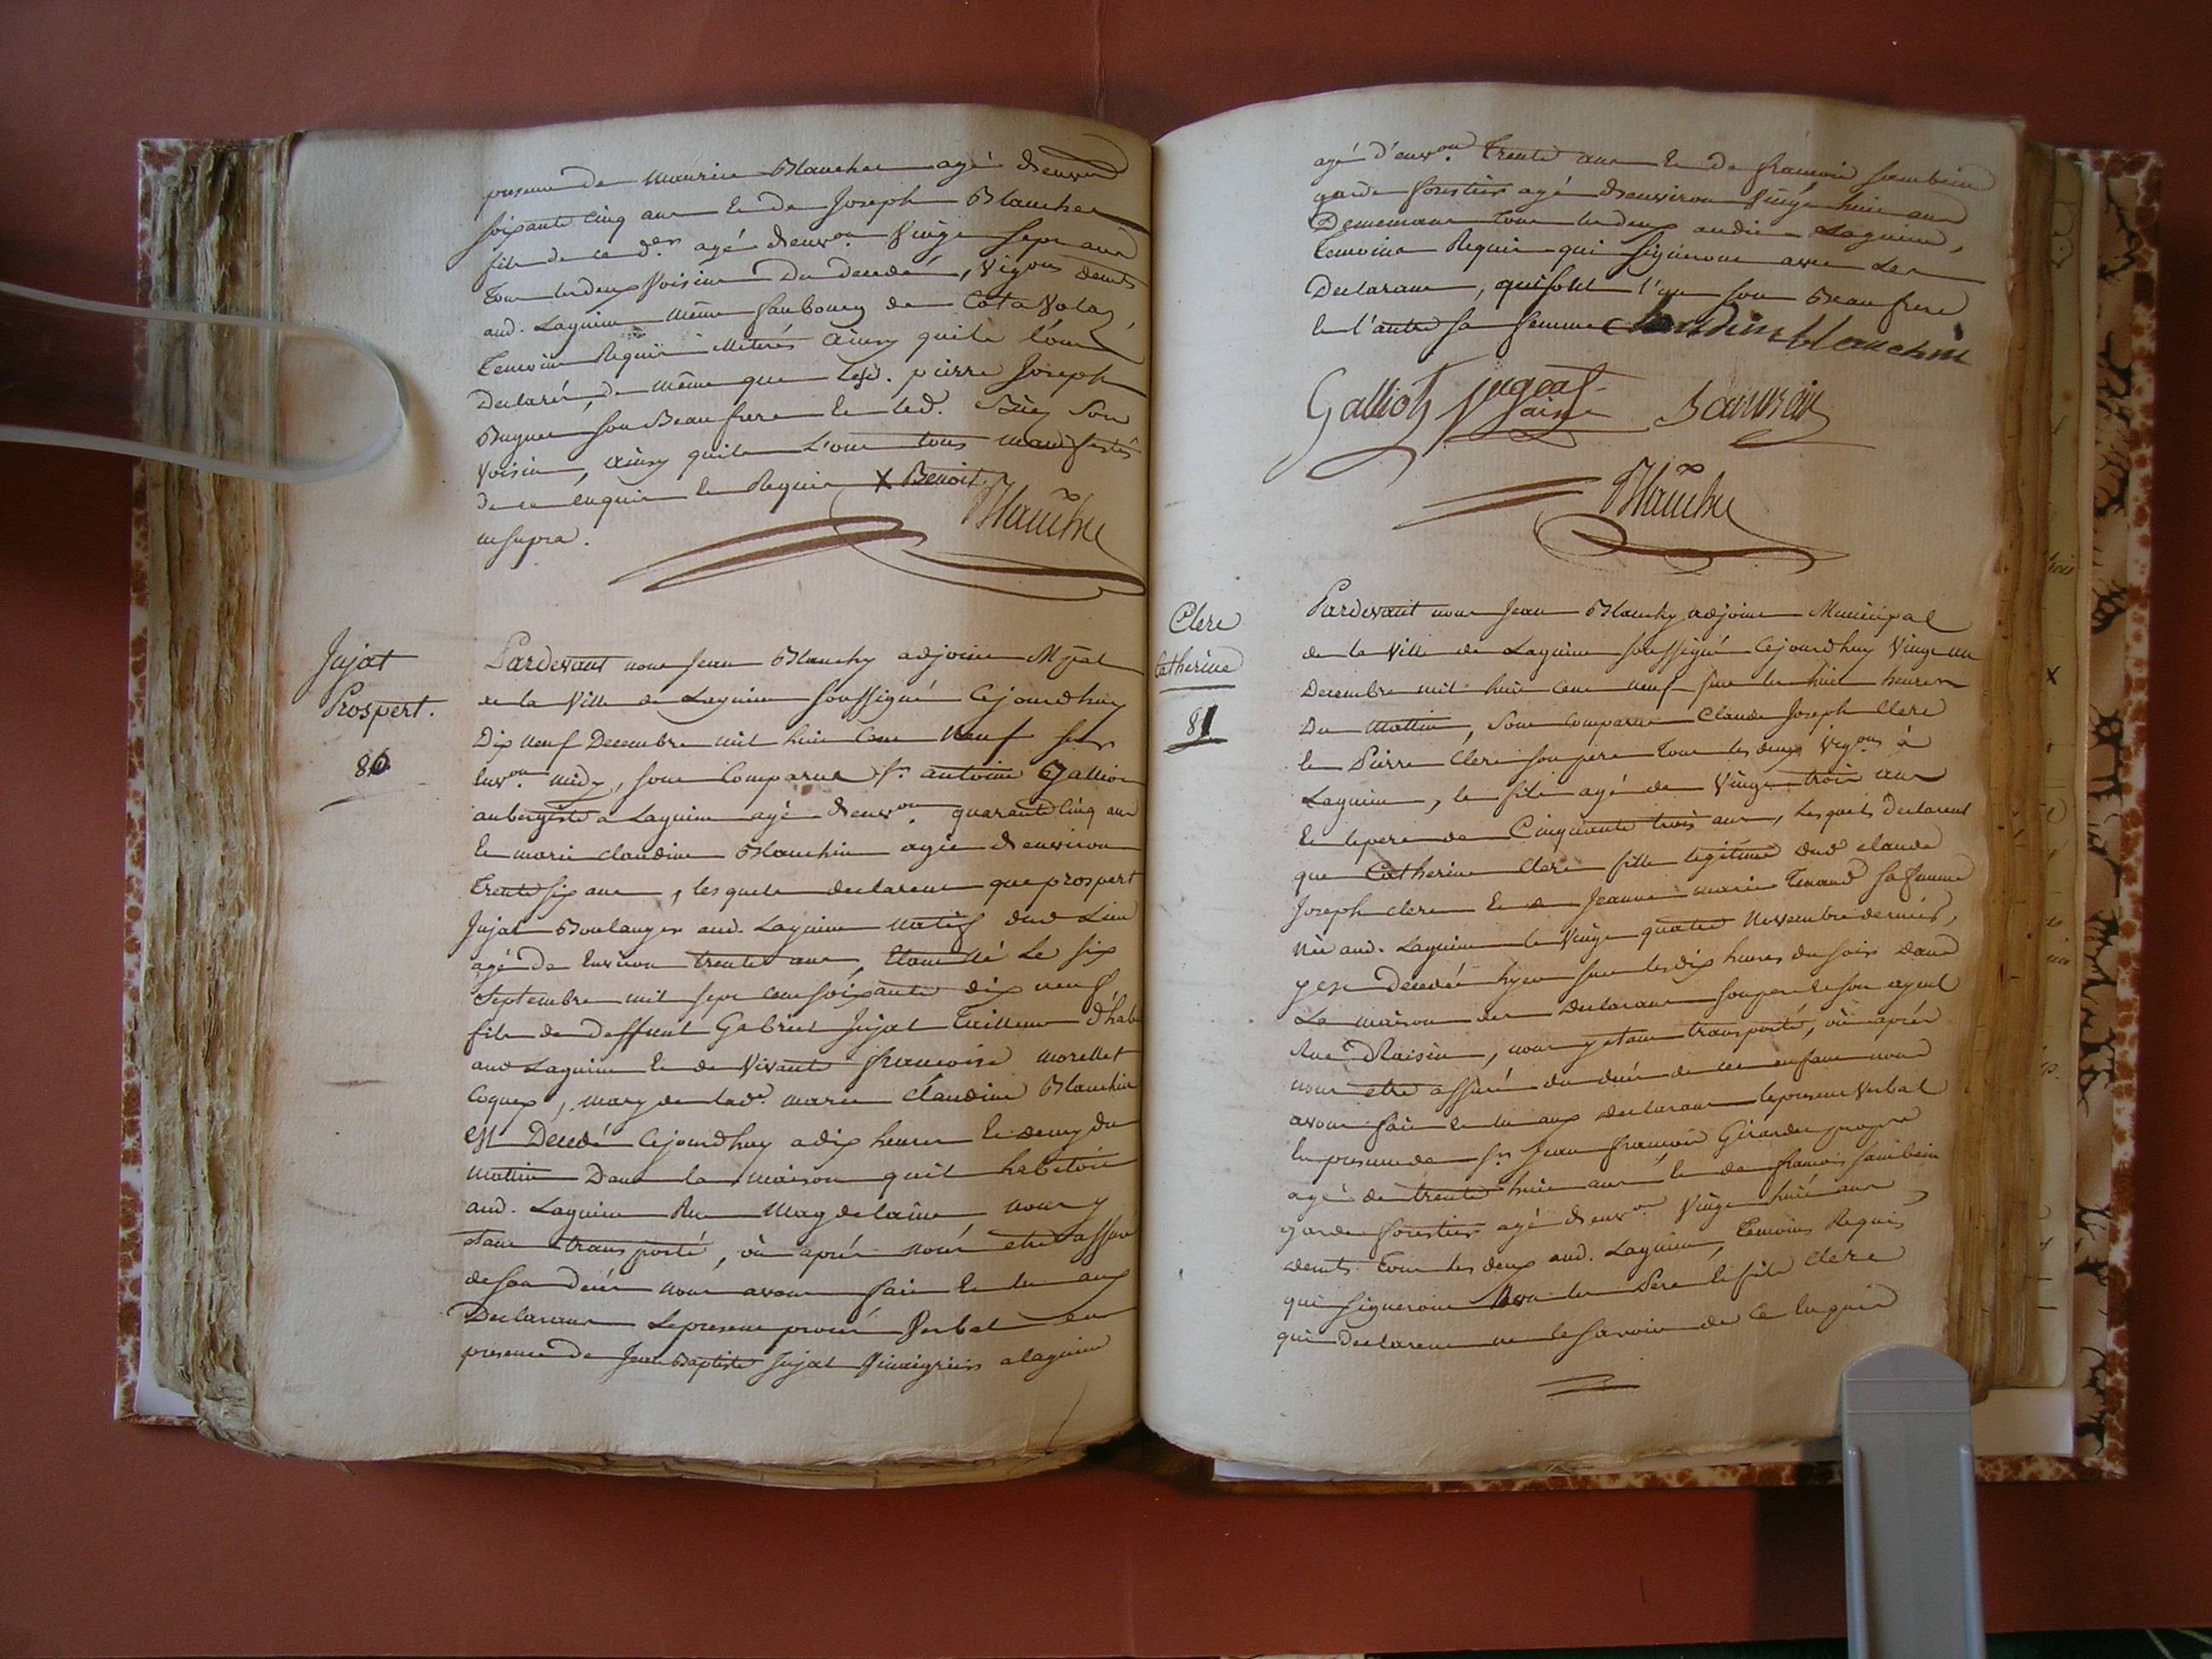 presence de Maurice Blanchet agé denvon
soixante cinq ans et de Joseph Blanchet
fils de ce d.er agé denvon vingt sept ans
tous les deux voisins du decedé, vigons demts
aud. Lagnieu même faubourg de
temoins requis ainsy quils l'ont
declarés, de même que led. pierre Joseph
Buguet son Beaufrere et led. son
voisin, ainsy quils l'ont tous
de ce enquis et Requis X Benoit
ut supra.
Blanchy
Jujat
Prospert.
80
Pardevant nous Jean Blanchy adjoint Mpal
de la Ville de Lagnieu soussigné Cejourdhuy
Dix neuf Decembre mil huit Cent Neuf sur
Envon midy, sont Comparus Sr. antoine Galliot
aubergiste a Lagnieu agé denvon quarante Cinq ans
et marie claudine Blanchin agée denviron
trente six ans, lesquels declarent que prospert
Jujat Boulanger aud. Lagnieu natif dud Lieu
agé de Environ trente ans, Etant né Le six
Septembre mil sept cent soixante dix neuf
fils de deffunt Gabriel Jujat Tailleur d'hab
aud Lagnieu et de Vivante francoise morellet
Coquex, mary de lade. marie claudine Blanchin
est Decedé Cejourdhuy a dix heures et demy du
mattin Dans la maison quil habitoit
aud. Lagnieu Rue Magdelaine nous y
etant transporté, où après nous etre assuré
de son decés nous avons fait et lu aux
Declarans Le present procés Verbal en
presence de Jean Baptiste Jujat Vinaigriers a lagnieu
agé d'envon. Trente ans et de francois Jambein
garde forestier agé denviron vingt huit ans
Demeurans tous les deux audit Lagnieu,
temoins Requis qui signeront avec Les
Declarans, qui sont l'un son Beaufrere
et l'autre sa femme Claudine blanchin
Galliot Jugeat
aisné
Blanchy
Clerc
Catherine
81
Pardevant nous Jean Blanchy adjoint Municipal
de la Ville de Lagnieu soussigné Cejourdhuy Vingt un
Decembre mil huit cent neuf sur les huit heures
Du Mattin, sont comparus Claude Joseph Clerc
et Pierre Clerc son pere tous les deux vigons à
Lagnieu, le fils agé de Vingt trois ans
Et le pere de Cinquante trois ans, Lesquels declarent
que Catherine Clerc fille legitime dud claude
Joseph clerc et de Jeanne marie sa femme
née aud. Lagnieu le vingt quatre Novembre dernier,
y est Decedée hyer sur les dix heures du soir dans
La maison des Declarans son pere et son ayeul
Rue , nous y etant transporté, où après
nous etre assuré du decés de cet enfant nous
avons fait et lu aux declarans le present Verbal
En presence de Sr. Jean francois Girardet
agé de trente huit ans et de francois Jambein
garde forestier agé denvon vingt huit ans
demts tous les deux aud. Lagnieu, temoins Requis
qui signeront Non les Pere et fils clerc
qui declarent ne le savoir de ce Enquis